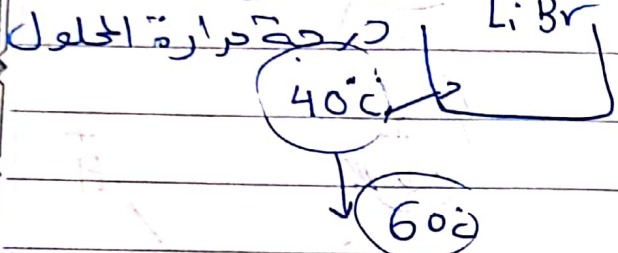 درجة حرارة المحلول Li Br
40°C
60°C